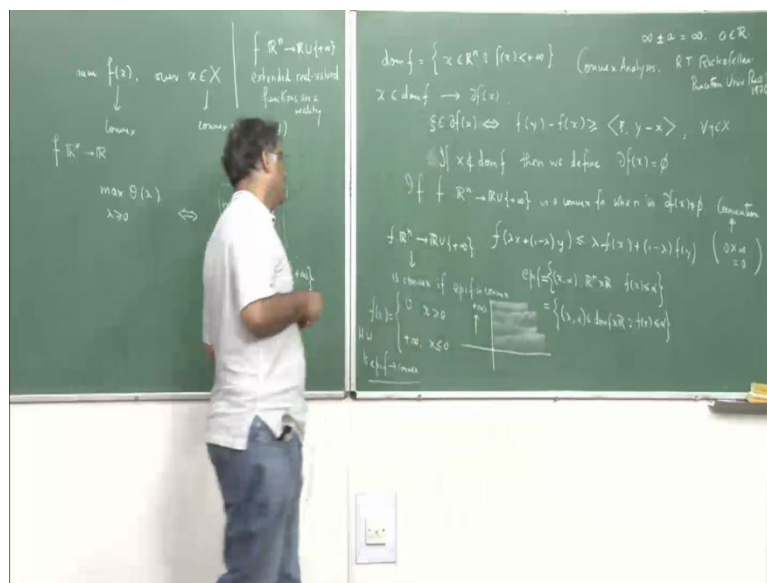 min f(x), over x ∈ X
↓ ↓
Convex convex
f ℝⁿ → ℝ
max θ(λ)
λ ≥ 0 ⇔
f ℝⁿ → ℝ ∪ {+∞}
extended real-valued
functions are a
reality
+∞}
∞ ± a = ∞, a ∈ ℝ.
dom f = { x ∈ ℝⁿ : f(x) < +∞ } Convex Analysis, R T Rockafellar
Princeton Univ Press
1970
x ∈ dom f → ∂f(x).
ξ ∈ ∂f(x) ⇔ f(y) − f(x) ≥ ⟨ξ, y − x⟩, ∀y ∈ X
If x ∉ dom f then we define ∂f(x) = φ
If f ℝⁿ → ℝ ∪ {+∞} is a convex fn when is ∂f(x) ≠ φ
Convention
↑
f ℝⁿ → ℝ ∪ {+∞} f(λx + (1−λ)y) ≤ λf(x) + (1−λ)f(y) (0×∞ = 0)
↓
is convex if epi f is convex epi f = {(x, α) ℝⁿ × ℝ f(x) ≤ α}
= {(x, α) ∈ dom f × ℝ : f(x) ≤ α}
f(x) = { 0 x > 0
+∞, x ≤ 0
+∞
H.W
epi f → convex